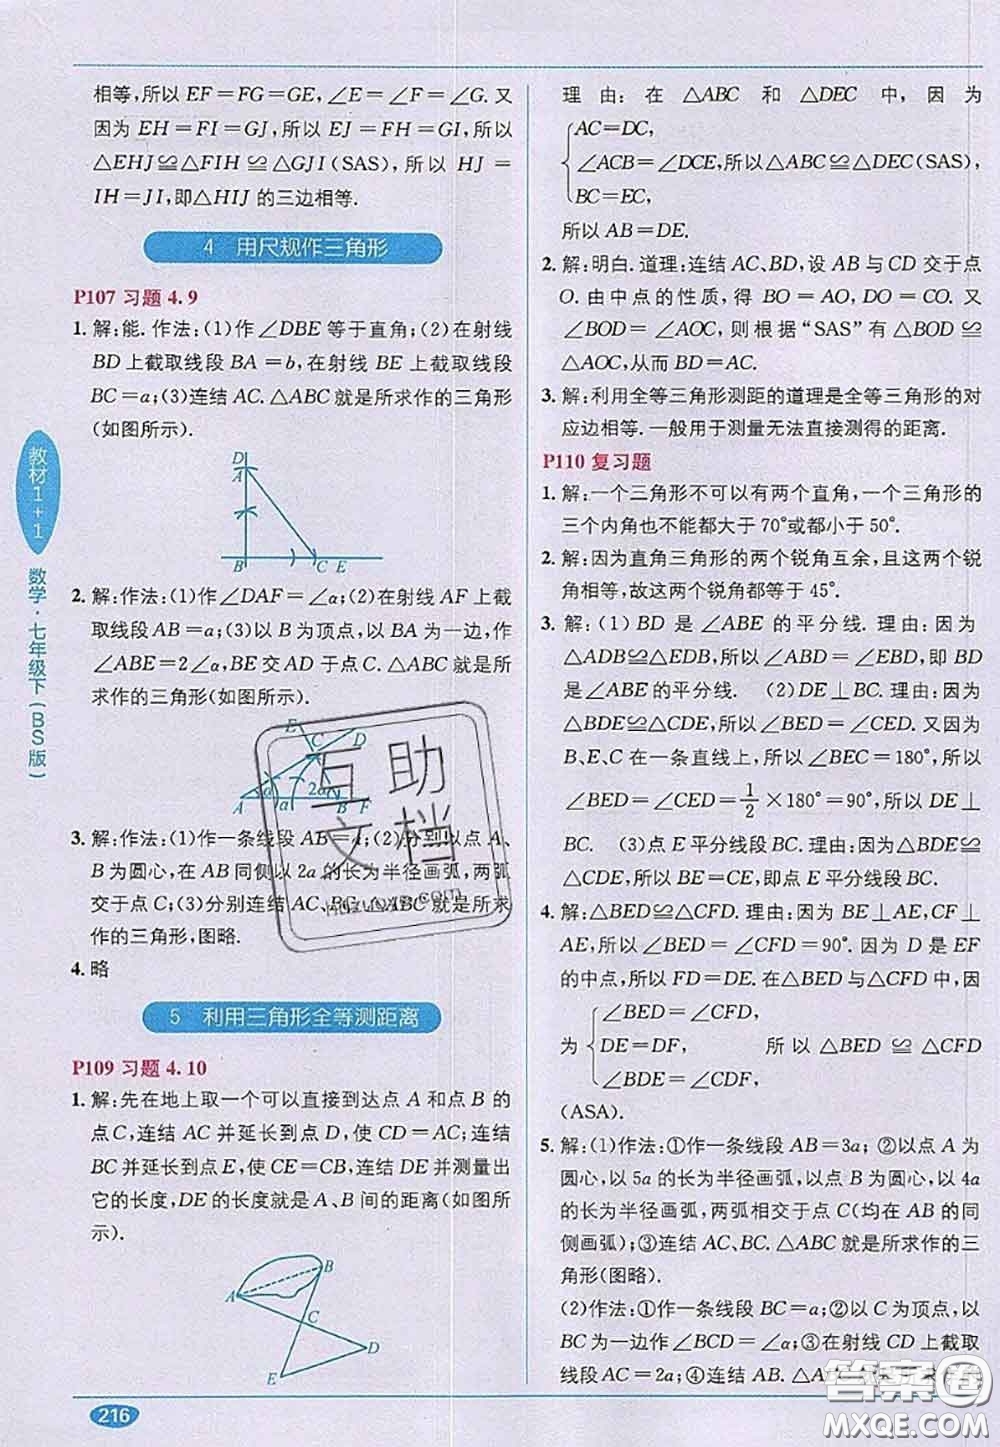 相等,所以 EF=FG=GE,∠E=∠F=∠G. 又
因为 EH=FI=GJ,所以 EJ=FH=GI,所以
△EHJ≌△FIH≌△GJI(SAS),所以 HJ=
IH=JI,即△HIJ 的三边相等.
4 用尺规作三角形
P107 习题 4.9
1. 解:能. 作法:(1)作∠DBE 等于直角;(2)在射线
BD 上截取线段 BA=b,在射线 BE 上截取线段
BC=a;(3)连结 AC. △ABC 就是所求作的三角形
(如图所示).
D
A
B
C E
2. 解:作法:(1)作∠DAF=∠α;(2)在射线 AF 上截
取线段 AB=a;(3)以 B 为顶点,以 BA 为一边,作
∠ABE=2∠α,BE 交 AD 于点 C. △ABC 就是所
求作的三角形(如图所示).
E
C
D
A
α
2α
a
B
F
3. 解:作法:(1)作一条线段 AB=a;(2)分别以点 A、
B 为圆心,在 AB 同侧以 2a 的长为半径画弧,两弧
交于点 C;(3)分别连结 AC、BC. △ABC 就是所求
作的三角形,图略.
4. 略
5 利用三角形全等测距离
P109 习题 4.10
1. 解:先在地上取一个可以直接到达点 A 和点 B 的
点 C,连结 AC 并延长到点 D,使 CD=AC;连结
BC 并延长到点 E,使 CE=CB,连结 DE 并测量出
它的长度,DE 的长度就是 A、B 间的距离(如图所
示).
A
B
C
D
E
理由:在 △ABC 和 △DEC 中,因为
AC=DC,
∠ACB=∠DCE,所以△ABC≌△DEC(SAS),
BC=EC,
所以 AB=DE.
2. 解:明白. 道理:连结 AC、BD,设 AB 与 CD 交于点
O. 由中点的性质,得 BO=AO,DO=CO. 又
∠BOD=∠AOC,则根据“SAS”有△BOD≌
△AOC,从而 BD=AC.
3. 解:利用全等三角形测距的道理是全等三角形的对
应边相等. 一般用于测量无法直接测得的距离.
P110 复习题
1. 解:一个三角形不可以有两个直角,一个三角形的
三个内角也不能都大于 70°或都小于 50°.
2. 解:因为直角三角形的两个锐角互余,且这两个锐
角相等,故这两个锐角都等于 45°.
3. 解:(1)BD 是∠ABE 的平分线. 理由:因为
△ADB≌△EDB,所以∠ABD=∠EBD,即 BD
是∠ABE 的平分线. (2)DE⊥BC. 理由:因为
△BDE≌△CDE,所以∠BED=∠CED. 又因为
B、E、C 在一条直线上,所以∠BEC=180°,所以
∠BED=∠CED=1/2×180°=90°,所以 DE⊥
BC. (3)点 E 平分线段 BC. 理由:因为△BDE≌
△CDE,所以 BE=EC,即点 E 平分线段 BC.
4. 解:△BED≌△CFD. 理由:因为 BE⊥AE,CF⊥
AE,所以∠BED=∠CFD=90°. 因为 D 是 EF
的中点,所以 FD=DE. 在△BED 与△CFD 中,因
∠BED=∠CFD,
为 DE=DF, 所以△BED≌△CFD
∠BDE=∠CDF,
(ASA).
5. 解:(1)作法:①作一条线段 AB=3a;②以点 A 为
圆心,以 5a 的长为半径画弧,以点 B 为圆心,以 4a
的长为半径画弧,两弧相交于点 C(均在 AB 的同
侧画弧);③连结 AC、BC. △ABC 就是所求作的三
角形(图略).
(2)作法:①作一条线段 BC=a;②以 C 为顶点,以
BC 为一边作∠BCD=∠α;③在射线 CD 上截取
线段 AC=2a;④连结 AB. △ABC
教材1+1
数学·七年级下(BS版)
216
互助文档
答案圈
MXQE.COM